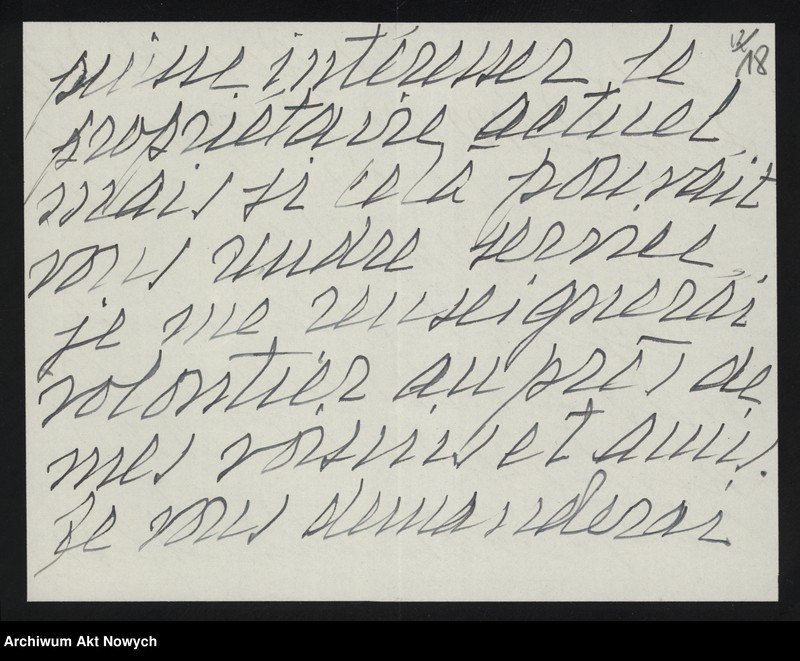 puisse intéresser le
18
propriétaire actuel,
mais si cela pouvait
vous rendre service,
je me renseignerai
volontier auprès de
mes voisins et amis.
Je vous demanderai
Archiwum Akt Nowych